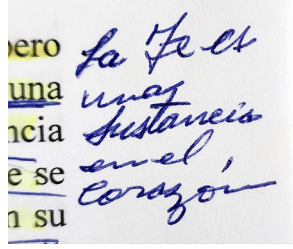 pero
una
ncia
e se
n su
La Fe es
una
Sustancia
en el
Corazón